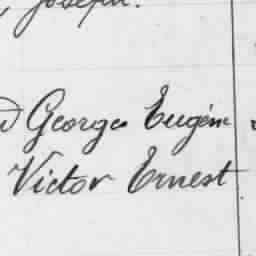 Joseph.
Georges Eugène
Victor Ernest